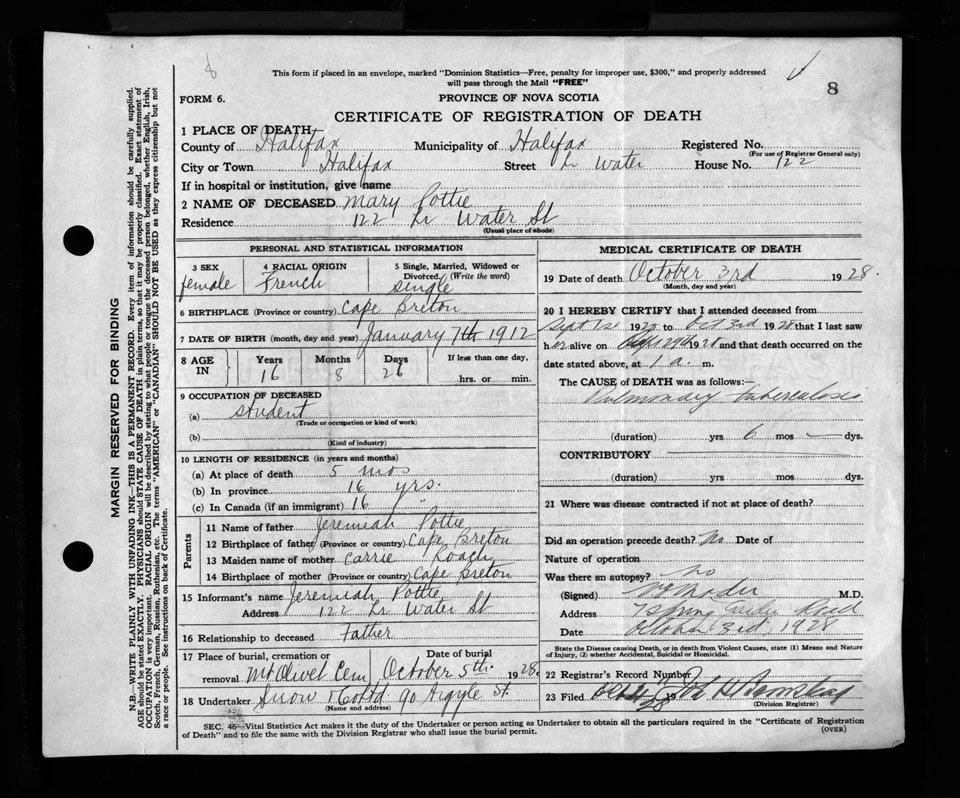 8
This form if placed in an envelope, marked "Dominion Statistics—Free, penalty for improper use, $300," and properly addressed
will pass through the Mail "FREE"
8
FORM 6.
PROVINCE OF NOVA SCOTIA
CERTIFICATE OF REGISTRATION OF DEATH
1 PLACE OF DEATH
County of Halifax Municipality of Halifax Registered No.
(For use of Registrar General only)
City or Town Halifax Street Lr Water House No. 122
If in hospital or institution, give name
2 NAME OF DECEASED Mary Pottie
Residence 122 Lr Water St
(Usual place of abode)
PERSONAL AND STATISTICAL INFORMATION
3 SEX female
4 RACIAL ORIGIN French
5 Single, Married, Widowed or Divorced. (Write the word) single
6 BIRTHPLACE (Province or country) Cape Breton
7 DATE OF BIRTH (month, day and year) January 7th 1912
8 AGE IN Years Months Days If less than one day,
16 8 26 hrs. or min.
9 OCCUPATION OF DECEASED
(a) student
(Trade or occupation or kind of work)
(b)
(Kind of industry)
10 LENGTH OF RESIDENCE (in years and months)
(a) At place of death 5 mos
(b) In province 16 yrs.
(c) In Canada (if an immigrant) 16 "
Parents
11 Name of father Jeremiah Pottie
12 Birthplace of father (Province or country) Cape Breton
13 Maiden name of mother Carrie Roach
14 Birthplace of mother (Province or country) Cape Breton
15 Informant's name Jeremiah Pottie
Address 122 Lr Water St
16 Relationship to deceased Father
17 Place of burial, cremation or removal Mt Olivet Cem Date of burial October 5th 1928.
18 Undertaker Snow & Co Ltd 90 Argyle St.
(Name and address)
MEDICAL CERTIFICATE OF DEATH
19 Date of death October 3rd 1928.
(Month, day and year)
20 I HEREBY CERTIFY that I attended deceased from
Sept 1st 1928 to Oct 3rd 1928 that I last saw
her alive on Sept 29th 1928 and that death occurred on the
date stated above, at 1 a. m.
The CAUSE of DEATH was as follows:—
Pulmonary tuberculosis
(duration) yrs 6 mos — dys.
CONTRIBUTORY
(duration) yrs mos dys.
21 Where was disease contracted if not at place of death?
Did an operation precede death? No Date of
Nature of operation
Was there an autopsy? No
(Signed) M.D.
Address Spring Garden Road
Date October 3rd, 1928
State the Disease causing Death, or in death from Violent Causes, state (1) Means and
Nature of Injury, (2) whether Accidental, Suicidal or Homicidal.
22 Registrar's Record Number
23 Filed Oct 19 28
(Division Registrar)
SEC. 46—Vital Statistics Act makes it the duty of the Undertaker or person acting as Undertaker to obtain all the particulars required in the "Certificate of Registration
of Death" and to file the same with the Division Registrar who shall issue the burial permit.
(OVER)
MARGIN RESERVED FOR BINDING
N.B.—WRITE PLAINLY WITH UNFADING INK—THIS IS A PERMANENT RECORD. Every item of information should be carefully supplied.
AGE should be stated EXACTLY. PHYSICIANS should STATE CAUSE OF DEATH in plain terms, so that it may be properly classified. Exact statement of
OCCUPATION is very important. RACIAL ORIGIN will be described by stating to what people or tongue the deceased person belonged, whether English, Irish,
Scotch, French, German, Russian, Ruthenian, etc. The terms "AMERICAN" or "CANADIAN" SHOULD NOT BE USED as they express citizenship but not
a race or people. See instructions on back of Certificate.